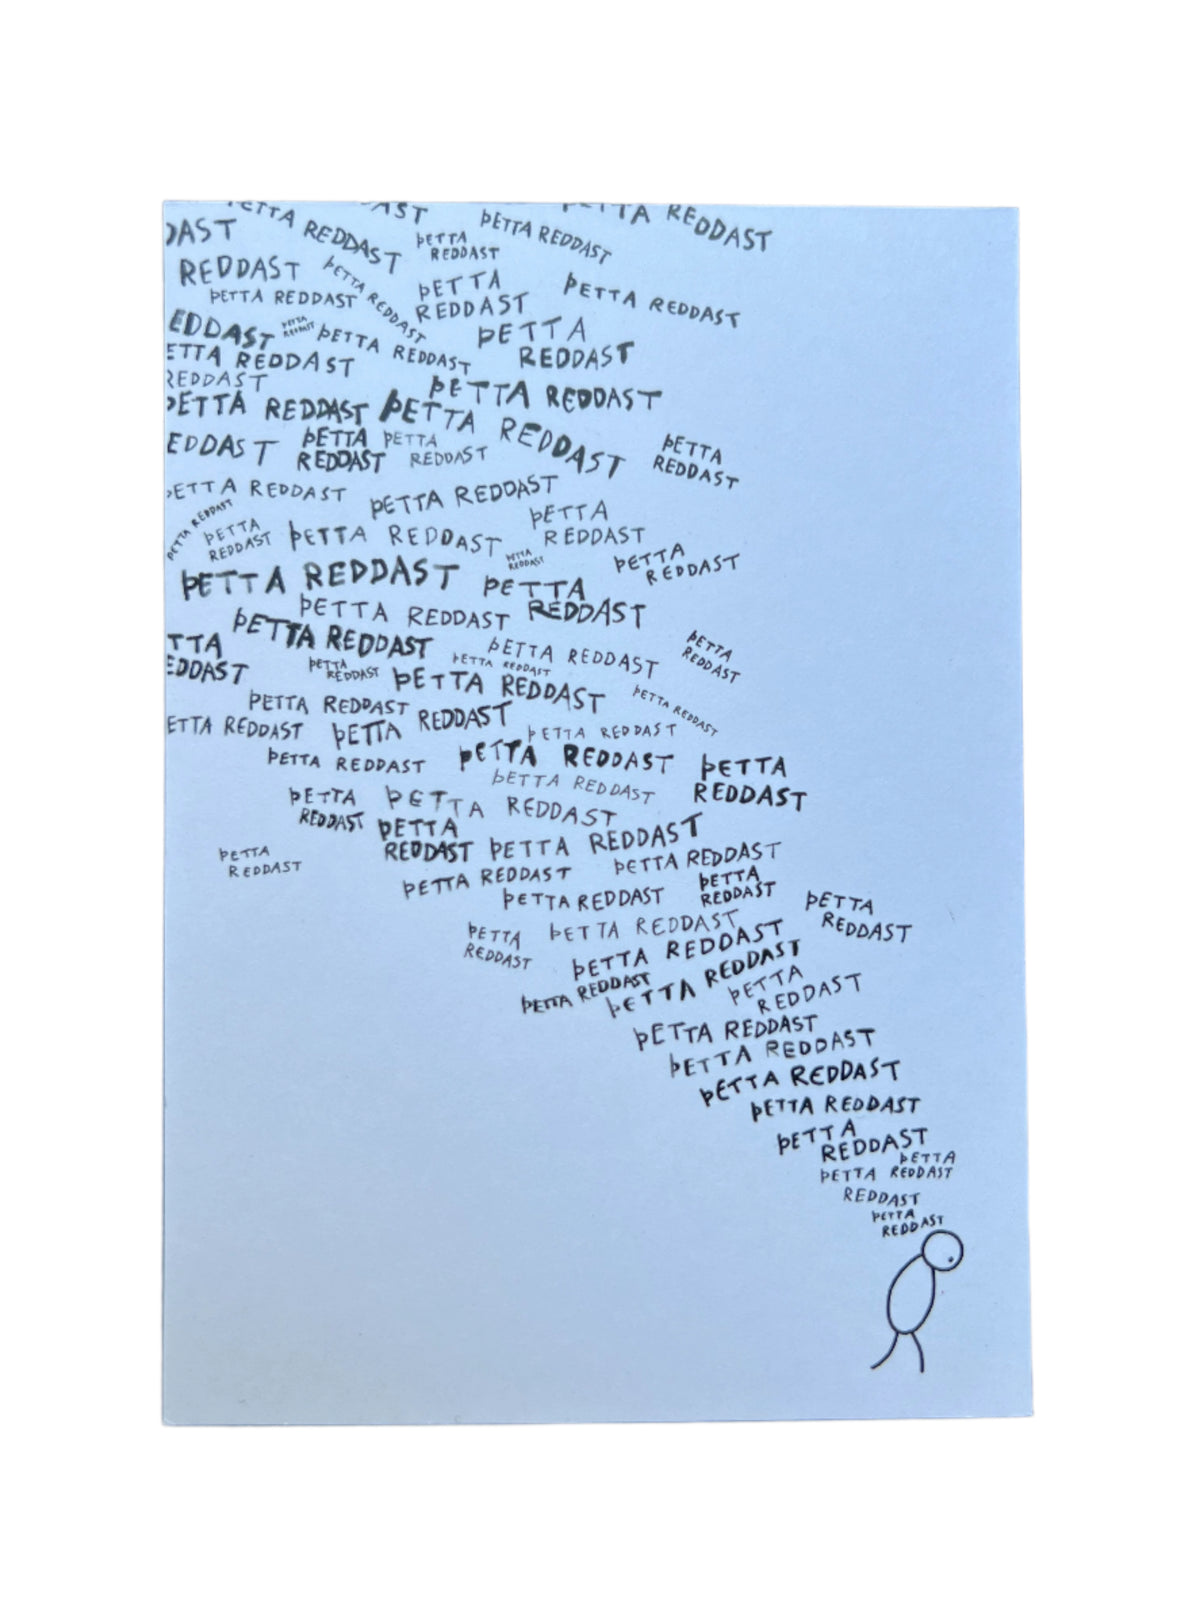 ETTA REDDAST
AST
ÞETTA REDDAST
ETTA REDDAST
DAST
ÞETTA
REDDAST
REDDAST
ÞETTA REDDAST
ÞETTA
REDDAST
ÞETTA REDDAST
ÞETTA REDDAST
EDDAST
ÞETTA
REDDAST
ÞETTA REDDAST
ÞETTA
REDDAST
ETTA REDDAST
REDDAST
ÞETTA REDDAST
ÞETTA REDDAST
ÞETTA REDDAST
EDDAST
ÞETTA
REDDAST
ÞETTA
REDDAST
ÞETTA
REDDAST
ÞETTA REDDAST
ÞETTA REDDAST
ÞETTA REDDAST
ÞETTA
REDDAST
ÞETTA REDDAST
ÞETTA
REDDAST
ÞETTA
REDDAST
ÞETTA
REDDAST
ÞETTA REDDAST
ÞETTA
REDDAST
ÞETTA REDDAST
ÞETTA REDDAST
TTA
EDDAST
ÞETTA REDDAST
ÞETTA
REDDAST
ÞETTA
REDDAST
ÞETTA REDDAST
ÞETTA REDDAST
ÞETTA REDDAST
ÞETTA REDDAST
ETTA REDDAST
ÞETTA REDDAST
ÞETTA REDDAST
ÞETTA REDDAST
ÞETTA REDDAST
ÞETTA
REDDAST
ÞETTA REDDAST
ÞETTA
REDDAST
ÞETTA REDDAST
ÞETTA
REDDAST
ÞETTA REDDAST
ÞETTA
REDDAST
ÞETTA REDDAST
ÞETTA REDDAST
ÞETTA REDDAST
ÞETTA
REDDAST
ÞETTA
REDDAST
ÞETTA
REDDAST
ÞETTA REDDAST
ÞETTA REDDAST
ÞETTA REDDAST
ÞETTA REDDAST
ÞETTA
REDDAST
ÞETTA REDDAST
ÞETTA REDDAST
ÞETTA REDDAST
ÞETTA REDDAST
ÞETTA
REDDAST
ÞETTA
ÞETTA REDDAST
REDDAST
ÞETTA
REDDAST